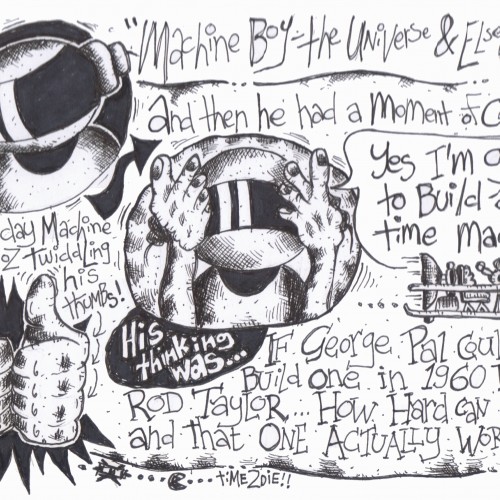 "Machine Boy - the Universe & Else
and then he had a Moment of C
Yes I'm g
to Build a
time ma
day Machine
oz twiddling
his
thumbs!
His
thinking
was...
IF George Pal Coul
Build one in 1960
ROD TAYLOR... HOW Hard can
and that ONE ACTUALLY WOR
time2DIE!!